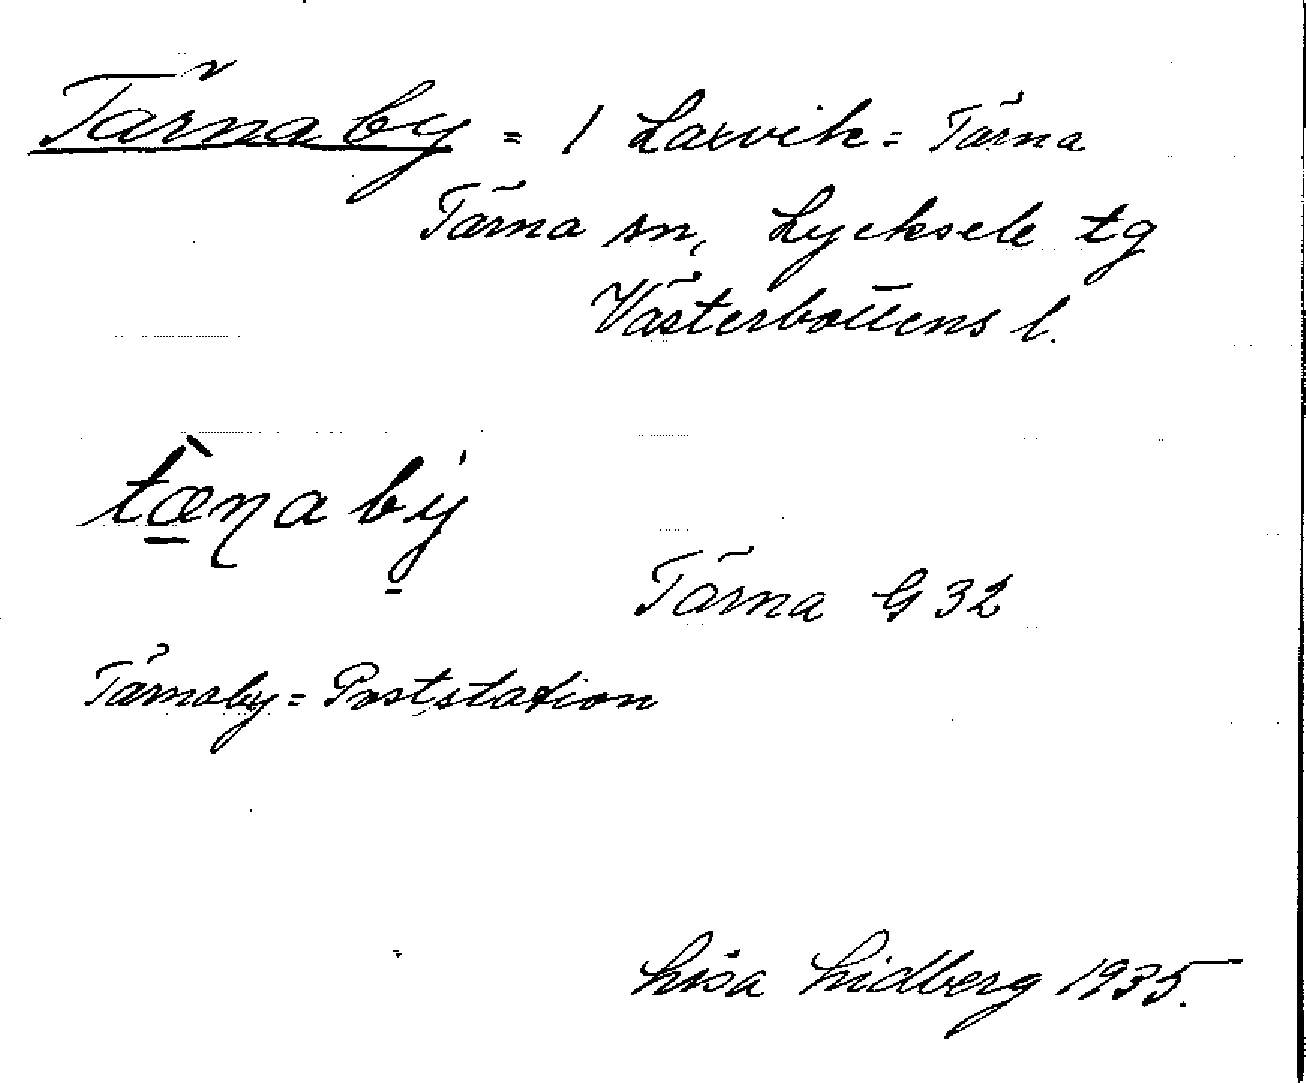 Tärnaby = / Laxvik = Tärna
Tärna sn, Lycksele tg
Västerbottens l.
tæ̀ṇaby̍
Tärna G 32
Tärnaby = Poststation
Lisa Lidberg 1935.